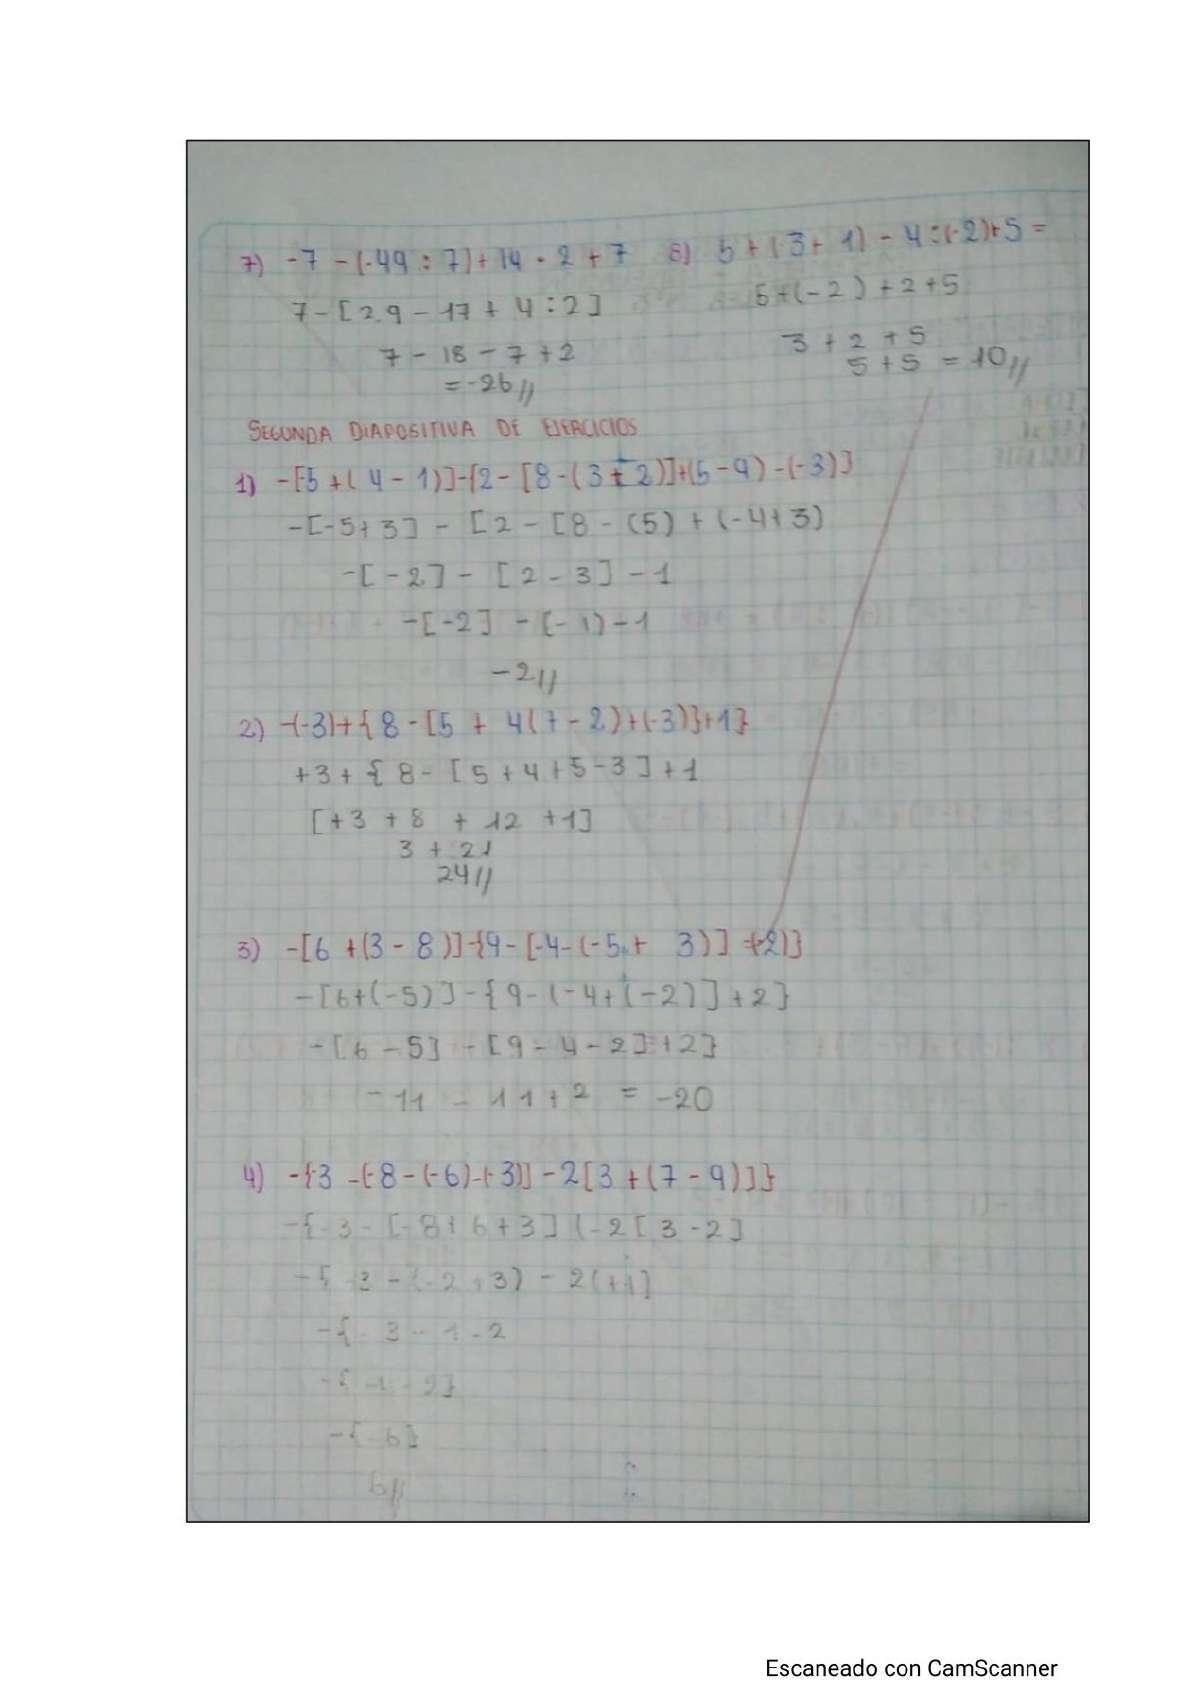 7) -7 - (-49 : 7) + 14 · 2 + 7
7 - [2.9 - 17 + 4 : 2]
7 - 18 - 7 + 2
= -26 //
8) 5 + (-3 + 1) - 4 : (-2) + 5 =
5 + (-2) + 2 + 5
3 + 2 + 5
5 + 5 = 10 //
SEGUNDA DIAPOSITIVA DE EJERCICIOS
1) -[-5 + (4 - 1)] - [2 - [8 - (3 + 2)] + (5 - 9) - (-3)]
-[-5+3] - [2 - [8 - (5) + (-4+3)
-[-2] - [2 - 3] - 1
-[-2] - (-1) - 1
-2 //
2) -(-3) + {8 - [5 + 4(7 - 2) + (-3)} + 1}
+3 + {8 - [5 + 4 + 5 - 3] + 1
[+3 + 8 + 12 + 1]
3 + 21
24 //
3) -[6 + (3 - 8)] - {9 - [-4 - (-5 + 3)] - (-2)}
-[6+(-5)] - {9 - (-4 + (-2)] + 2}
-[6 - 5] - [9 - 4 - 2] + 2}
-11 - 11 + 2 = -20
4) -{-3 - (-8 - (-6) - (-3)] - 2[3 + (7 - 9)]}
-{-3 - [-8 + 6 + 3] (-2 [3 - 2]
-{-3 - (-2 + 3) - 2(+1]
-{-3 - 1 - 2
-{-6}
6 //
Escaneado con CamScanner